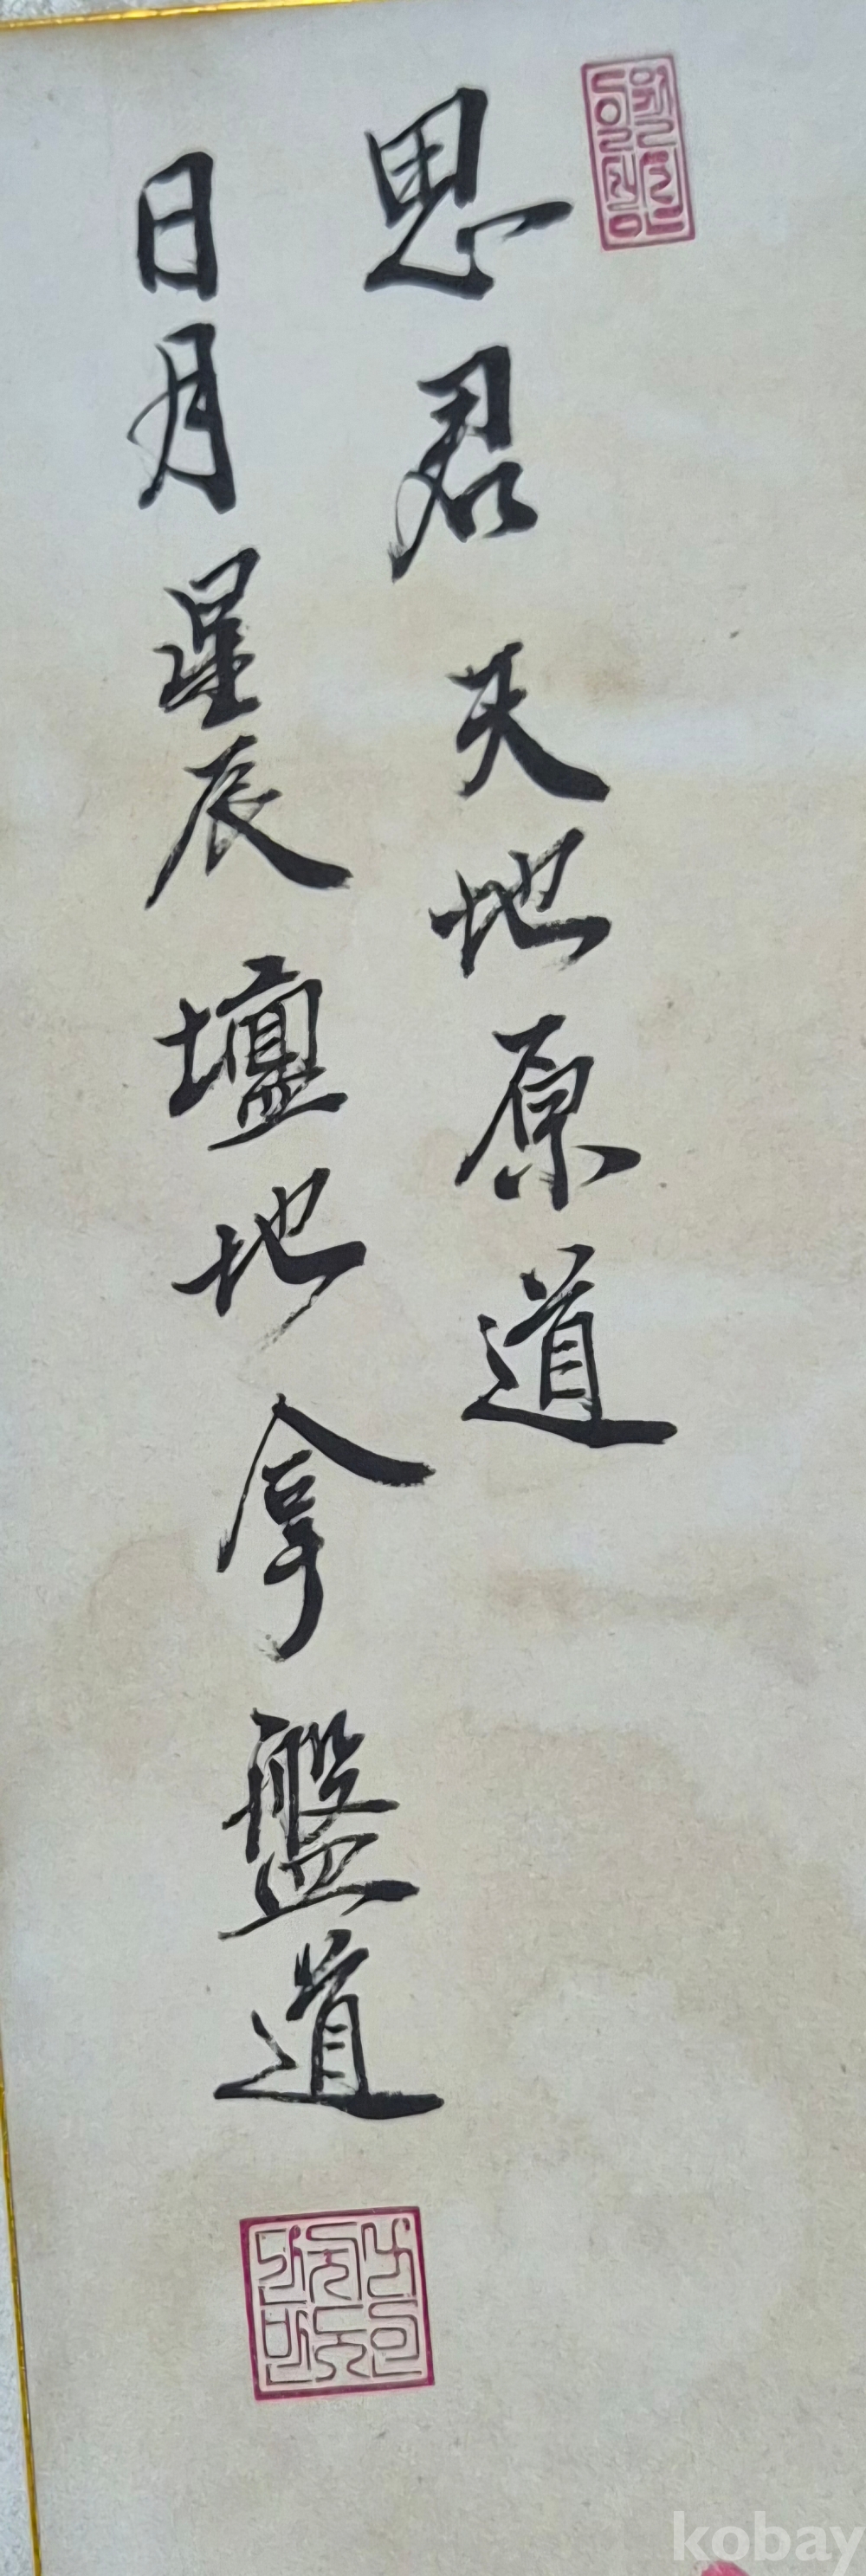 思君天地原道
日月星辰壇地拿盤道
kobay